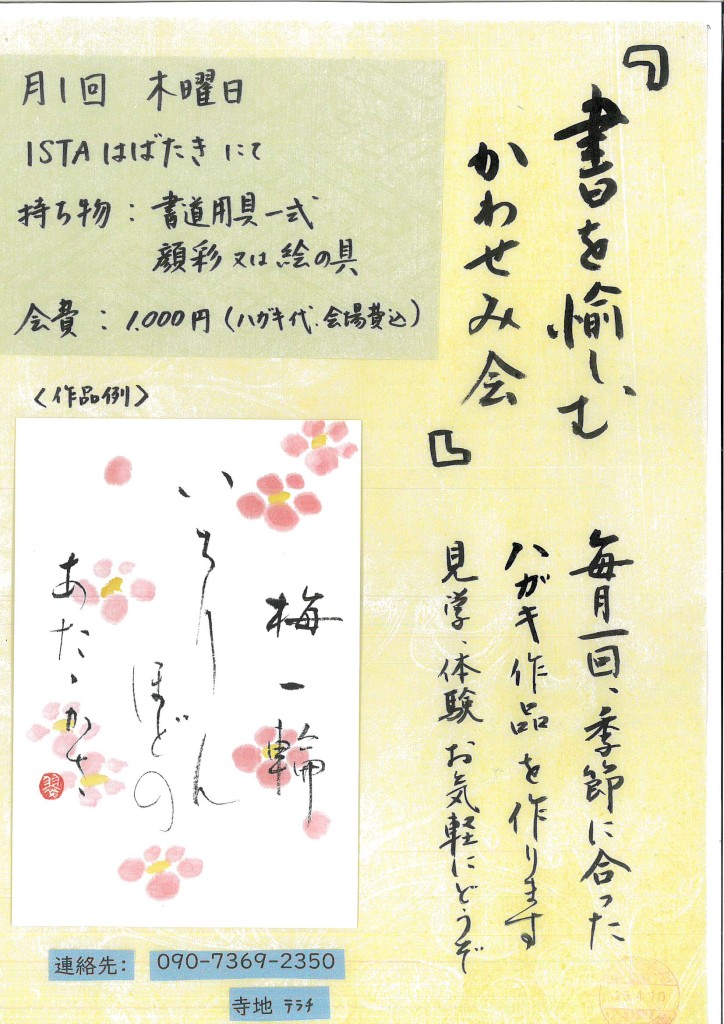 『書を愉しむ
かわせみ会』
毎月一回、季節に合った
ハガキ作品を作ります
見学、体験 お気軽にどうぞ
月1回 木曜日
ISTA はばたき にて
持ち物： 書道用具一式
顔彩 又は 絵の具
会費： 1,000円（ハガキ代、会場費込）
〈作品例〉
梅一輪
いちりん
ほどの
あたゝかさ
連絡先: 090-7369-2350
寺地 テラチ